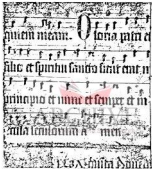 quiem meam. Gloria patri et
filio et spiritui sancto sicut erat in
principio et nunc et semper et in
secula seculorum A men